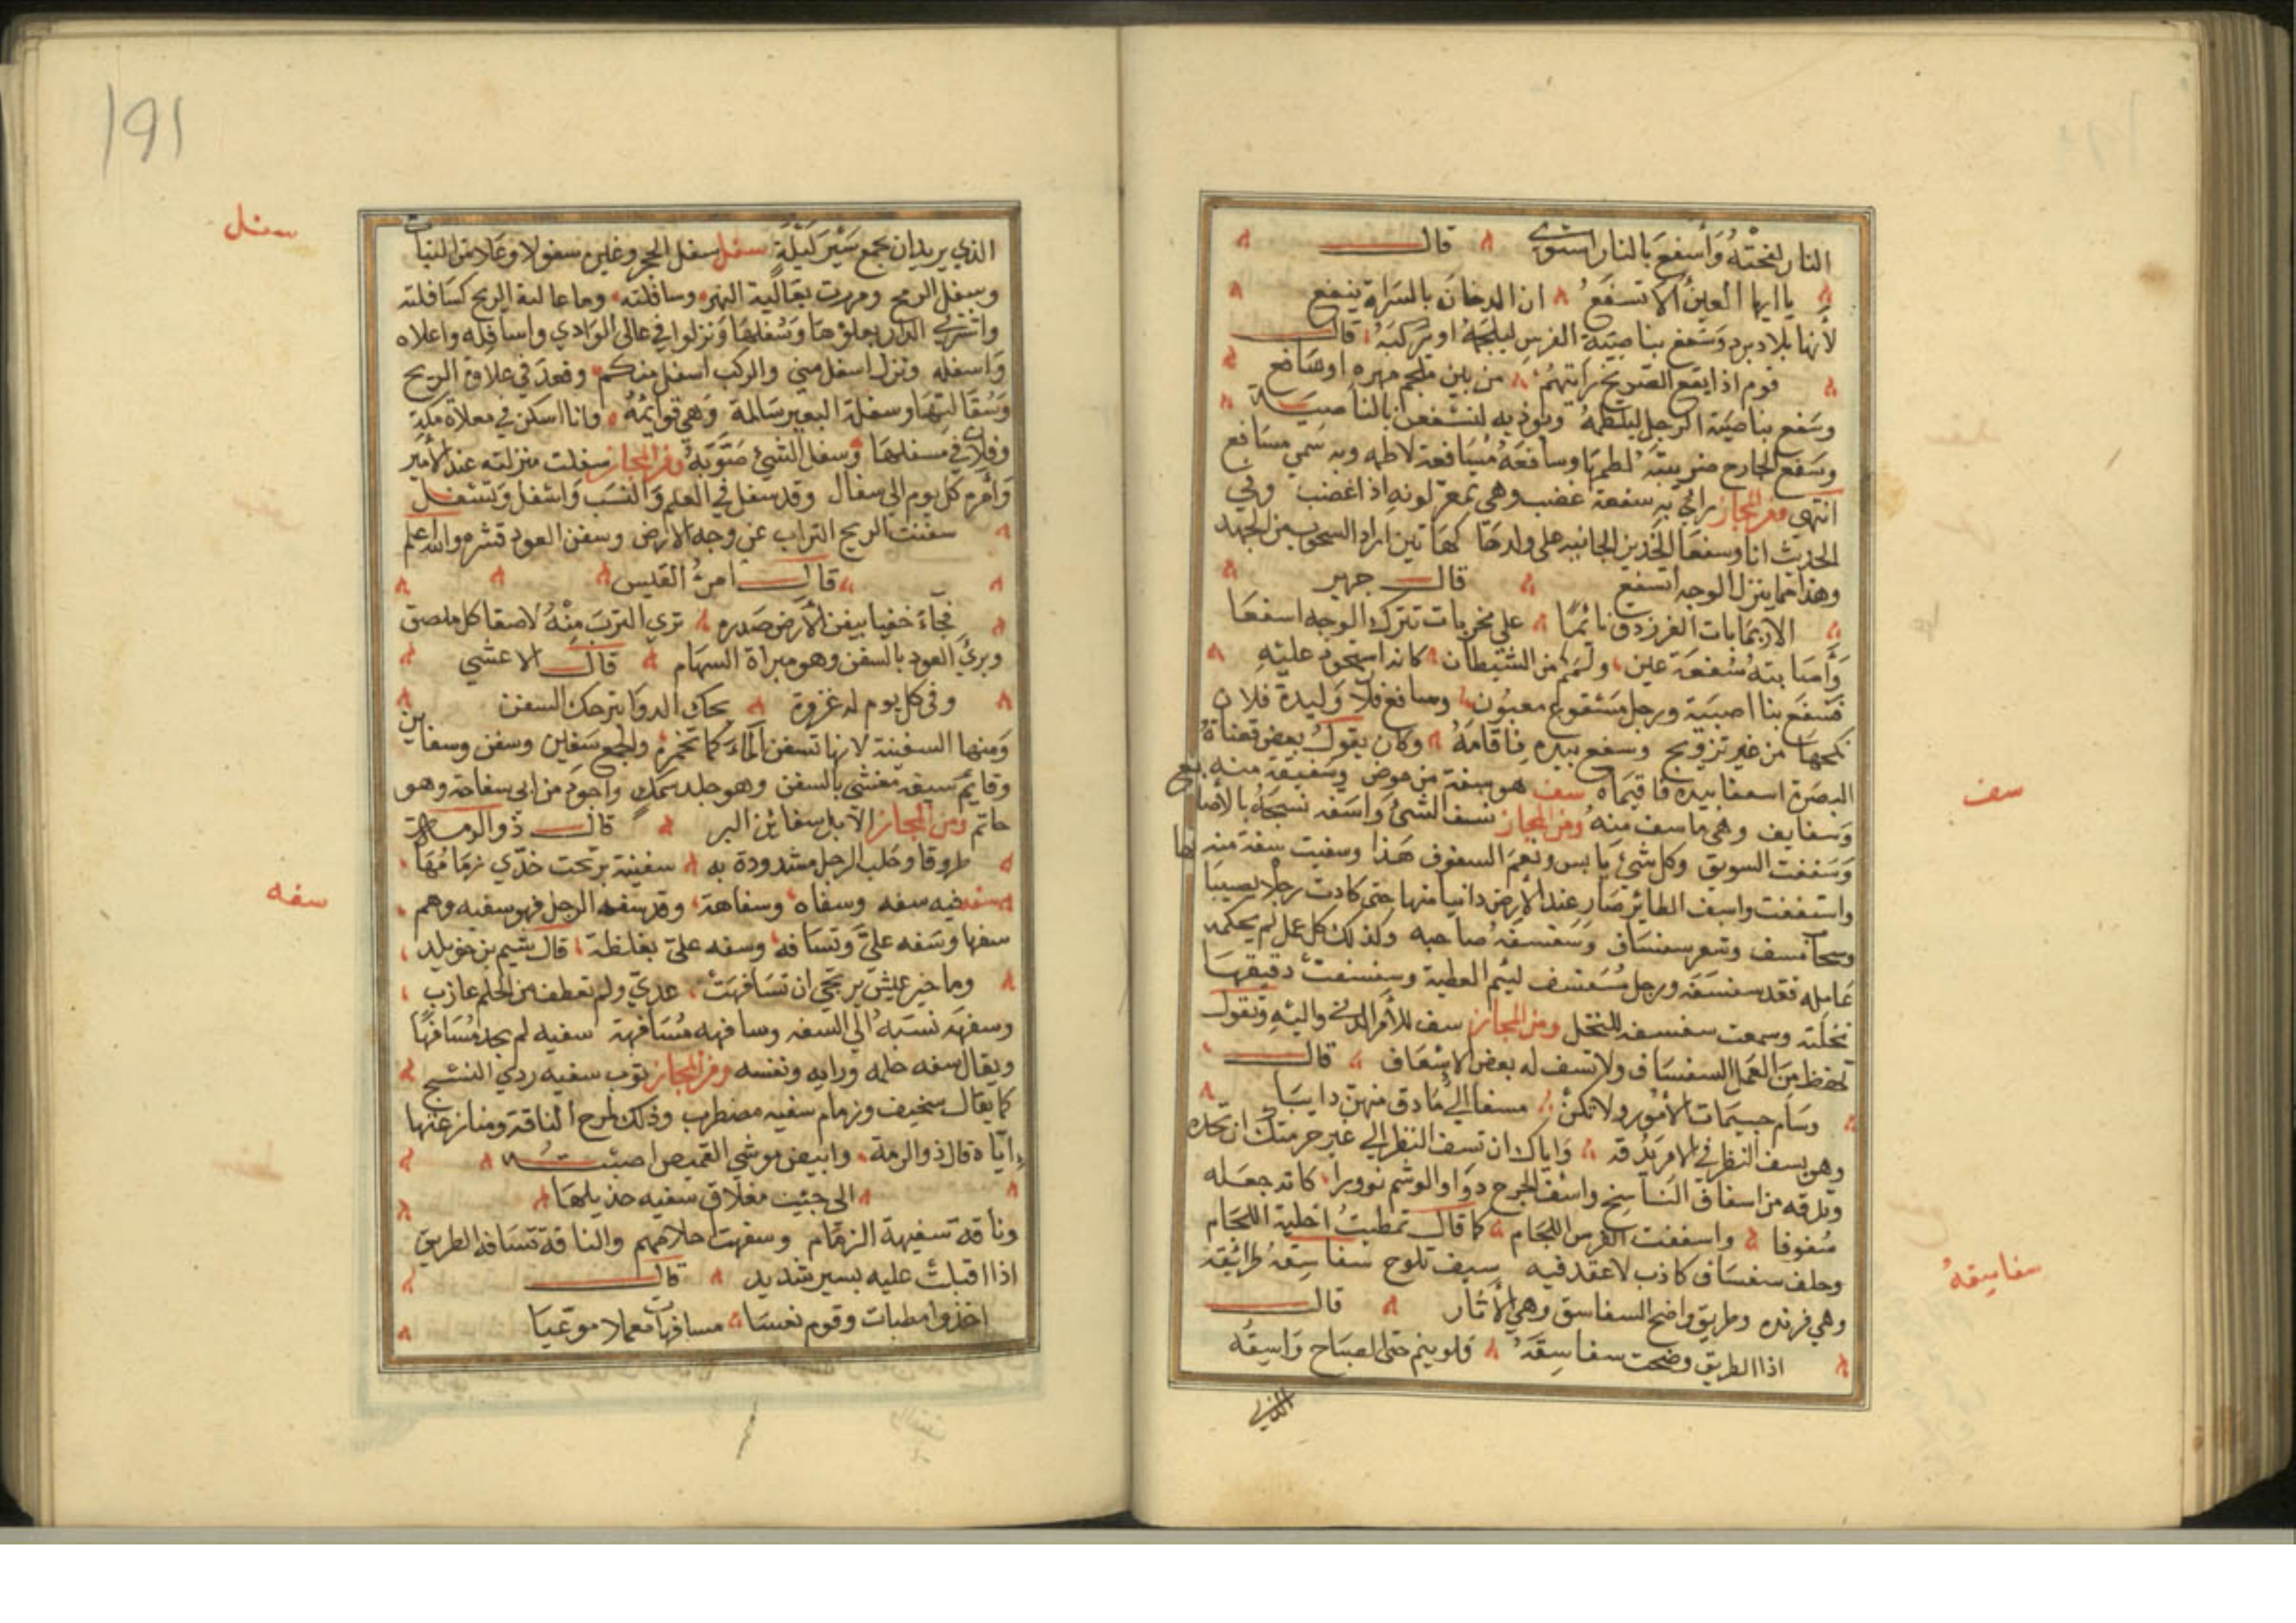 النار لفحتْهُ وَأسفعَ بالنار استوى قال
يا ايها العين ألا تسفع ان الدخان بالسراة ينفع
لأنها بلاد برد وسَفع بناصيَة الفرس ليلجمهُ او يركبَهُ قال
قوم اذا يقع الصريخ رايتهُم من بين ملجم مهره او سافع
وسَفع بناصيَة الرجل ليلطمهُ ويوذيه لنسفعن بالناصيَة
وسَفع الجارح ضريبتَهُ لطمهَا وسافعَهُ مُسَافعة لاطمه وبه سمي مسَافع
انتهي ومن المجاز رأي به سفعة غضب وهي تمعر لونه اذا غضب وفي
الحديث انا وسفعَا الخدين الحانيه على ولدهَا كهَاتين اراد الشحوب من الجهد
وهذا مما ينزل الوجه اسفع قال جرير
الا ربمَا بات الفرزدق نائمًا على مخزيات تترك الوجه اسفعَا
وَأصَابتهُ سُفعَة عين ولمم من الشيطان كانه استحوذ عليْهِ
فسَفع بناصيَتة ورجل مَسْفوع معيُون وسافع فلان وَليدة فلان
نكحهَا من غير تزويج وسفع بيده فاقامَهُ وكان يقول بعض قضاة
البصرة اسفعا بيده فاقيمَاه سف هو سفة من خوص وسَفيفة منه
وَسفايف وهي ما سف منهُ ومن المجاز سف الشيء وَاسَفه نسجَهُ بالأصابع
وَسَففت السويق وكل شيء يابس ونعمَ السفوف هَذا وسففت سفة منه
واستففت واسف الطائر صَار عند الأرض دانيا منها حتى كادت رجلاه يصيبَا ها
وسحاب مسف وشعر سفسَاف وَسَفسفَهُ صاحبه وكذلك كل عمل لم يحكمه
عَامِله فقد سفسَفَه ورجل مُسَفسف ليئم العطية وسفسفتُ دقيقهَا
نخلته وسمعت سفسفه المنخل ومن المجاز سف للأمر الدنيّ واليْه وتقول
تحفظ من العَمل السفسَاف ولا تسف له بعض الاسفَاف قال
وسَام جسيمَات الأمُور ولا تكنْ مسفا إلى مَا دق منهن دانيَا
وهو يسف النظر في الامر يَدُقه وَاياك ان تسف النظر إلى غير حرمتك ان تحده
وتدقه من اسفاف النَاسج واسُف الجرح دوَا والوشم نوورا كانه جعَله
سَفوفا واسففت الفرس اللجَام كما قال تمطيتُ اخليه اللجَام
وحلف سفسَاف كاذب لا عقد فيه سيف تلوح سفاسِقهُ طرائقه
وهي فرنده وطريق واضح السفاسق وهي الأثار قال
اذا الطريق وضحت سفاسِقَهُ فلو ينم حتى الصبَاح وَاسِيقُه
الذي
سف
سفاسيقهُ
191
الذي يريد ان يجمع سَيْر لَيْلَةٍ سفل سفل الحجر وغيره سفولا وعَلا من النبات
وسفل الريح ومررت بعَاليَة النهر وسافلته وما عالية الريح كسَافلته
واشتري الدار بعلوّهَا وَسُفلهَا وَنزلوا في عالي الوَادي واسَافله واعلاه
وَاسفله ونزل اسفل مني والركب اسفل منكم وقعدَ في علاوة الريح
وَسُفَالتهَا وسفلة البعير سَالمة وَهي قوائمهُ وانا اسكن في معلاة مكة
وفلان في مَسفلهَا وَسفل الشيئ صَوَّبهُ ومن المجاز سفلت منزلته عند الأمير
وَامرُهُم كل يوم إلى سفال وقد سفل في العلم وَالنسَب وَاسْفل وَتسَفل
سفنت الريح التراب عن وجه الأرض وسفن العود قشره والله اعلم
قال امرؤُ القيس
فجآءَ خفيا يسفن الأرض صَدره تري التربَ مِنْهُ لاصقا كل ملصق
وبريُ العود بالسفن وهو مبراة السهَام قال الاعشي
وفي كل يوم له غزوة يحك الدوَابر حك السفن
وَمنها السفينة لأنها تسفن المَاءَ كما تمخره والجمع سَفاين وسفن وسفاين
وقايم سيفه مُغشي بالسفن وهو جلد سمك واجوَد من ابي سفانة وهو
حاتم ومن المجاز الابل سفائن البر قال ذو الرمة
طروقا وجلب الرحل مشدودة به سفينة بر تحت خدّي زمَامُهَا
سفه فيه سفه وسفاه وسفاهة وقد سفه الرجل فهو سفيه وهم
سفها وسَفه عليّ وتسَافه وسفه عليّ بغلظة قال شتيم بن خويلد
وما خير عيْش يرتجي ان تسَافهَتْ عديّ ولم تعطف من الحلم عازب
وسفهَه نسَبهُ إلي السفه وسافهه مُسَافهة سفيه لم يجد مُسَافهًا
ويقال سفه حلمه ورايه ونفسه ومن المجاز ثوب سفيه ردي النسْج
كما يقَال سخيف وزمام سفيه مضطرب وذلك لمرح الناقة ومنازعتها
ايّاه قال ذو الرمة وابيض موشي القميص
الى جنب مغلاق سفيه جديلهَا
وناقة سفيهة الزمَام وسفهت احلامهم والناقة تسَافه الطريق
اذا اقبلتْ عليه بسير شديد قال
وقوم نعسَا مسافهات معملا موعيَا
سفل
سفه